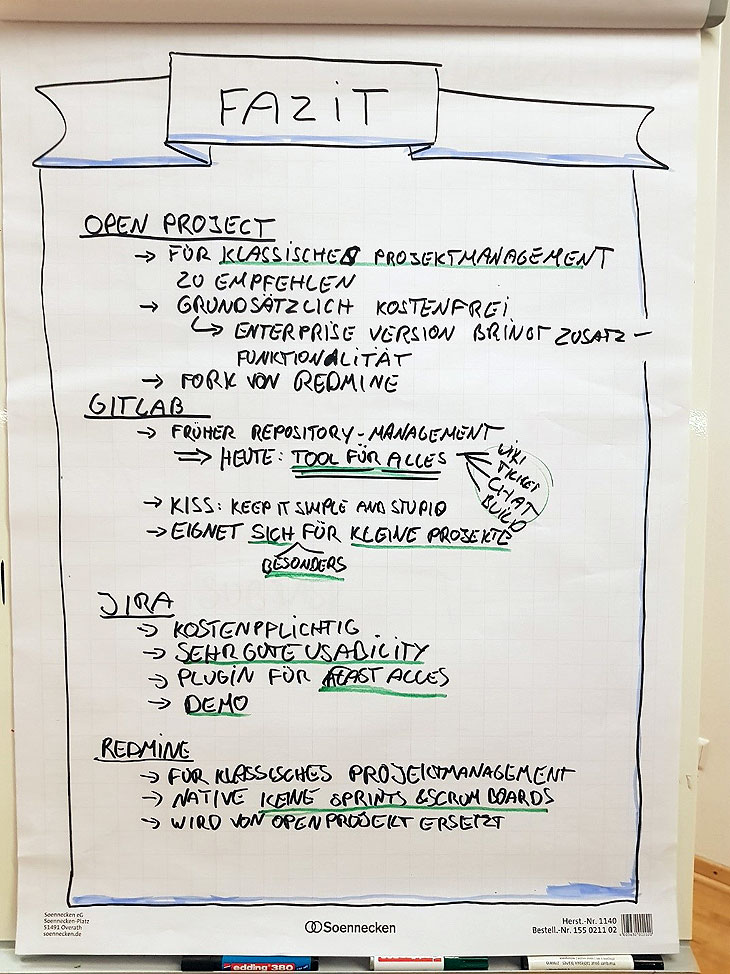 FAZIT
OPEN PROJECT
→ FÜR KLASSISCHES PROJEKTMANAGEMENT
ZU EMPFEHLEN
→ GRUNDSÄTZLICH KOSTENFREI
↳ ENTERPRISE VERSION BRINGT ZUSATZ-
FUNKTIONALITÄT
→ FORK VON REDMINE
GITLAB
→ FRÜHER REPOSITORY-MANAGEMENT
⇒ HEUTE: TOOL FÜR ALLES
WIKI
TICKET
CHAT
BUILD
→ KISS: KEEP IT SIMPLE AND STUPID
→ EIGNET SICH FÜR KLEINE PROJEKTE
BESONDERS
JIRA
→ KOSTENPFLICHTIG
→ SEHR GUTE USABILITY
→ PLUGIN FÜR FAST ALLES
→ DEMO
REDMINE
→ FÜR KLASSISCHES PROJEKTMANAGEMENT
→ NATIVE KEINE SPRINTS & SCRUM BOARDS
→ WIRD VON OPENPROJEKT ERSETZT
Soennecken eG
Soennecken-Platz
51491 Overath
soennecken.de
Soennecken
Herst.-Nr. 1140
Bestell.-Nr. 155 0211 02
edding 380